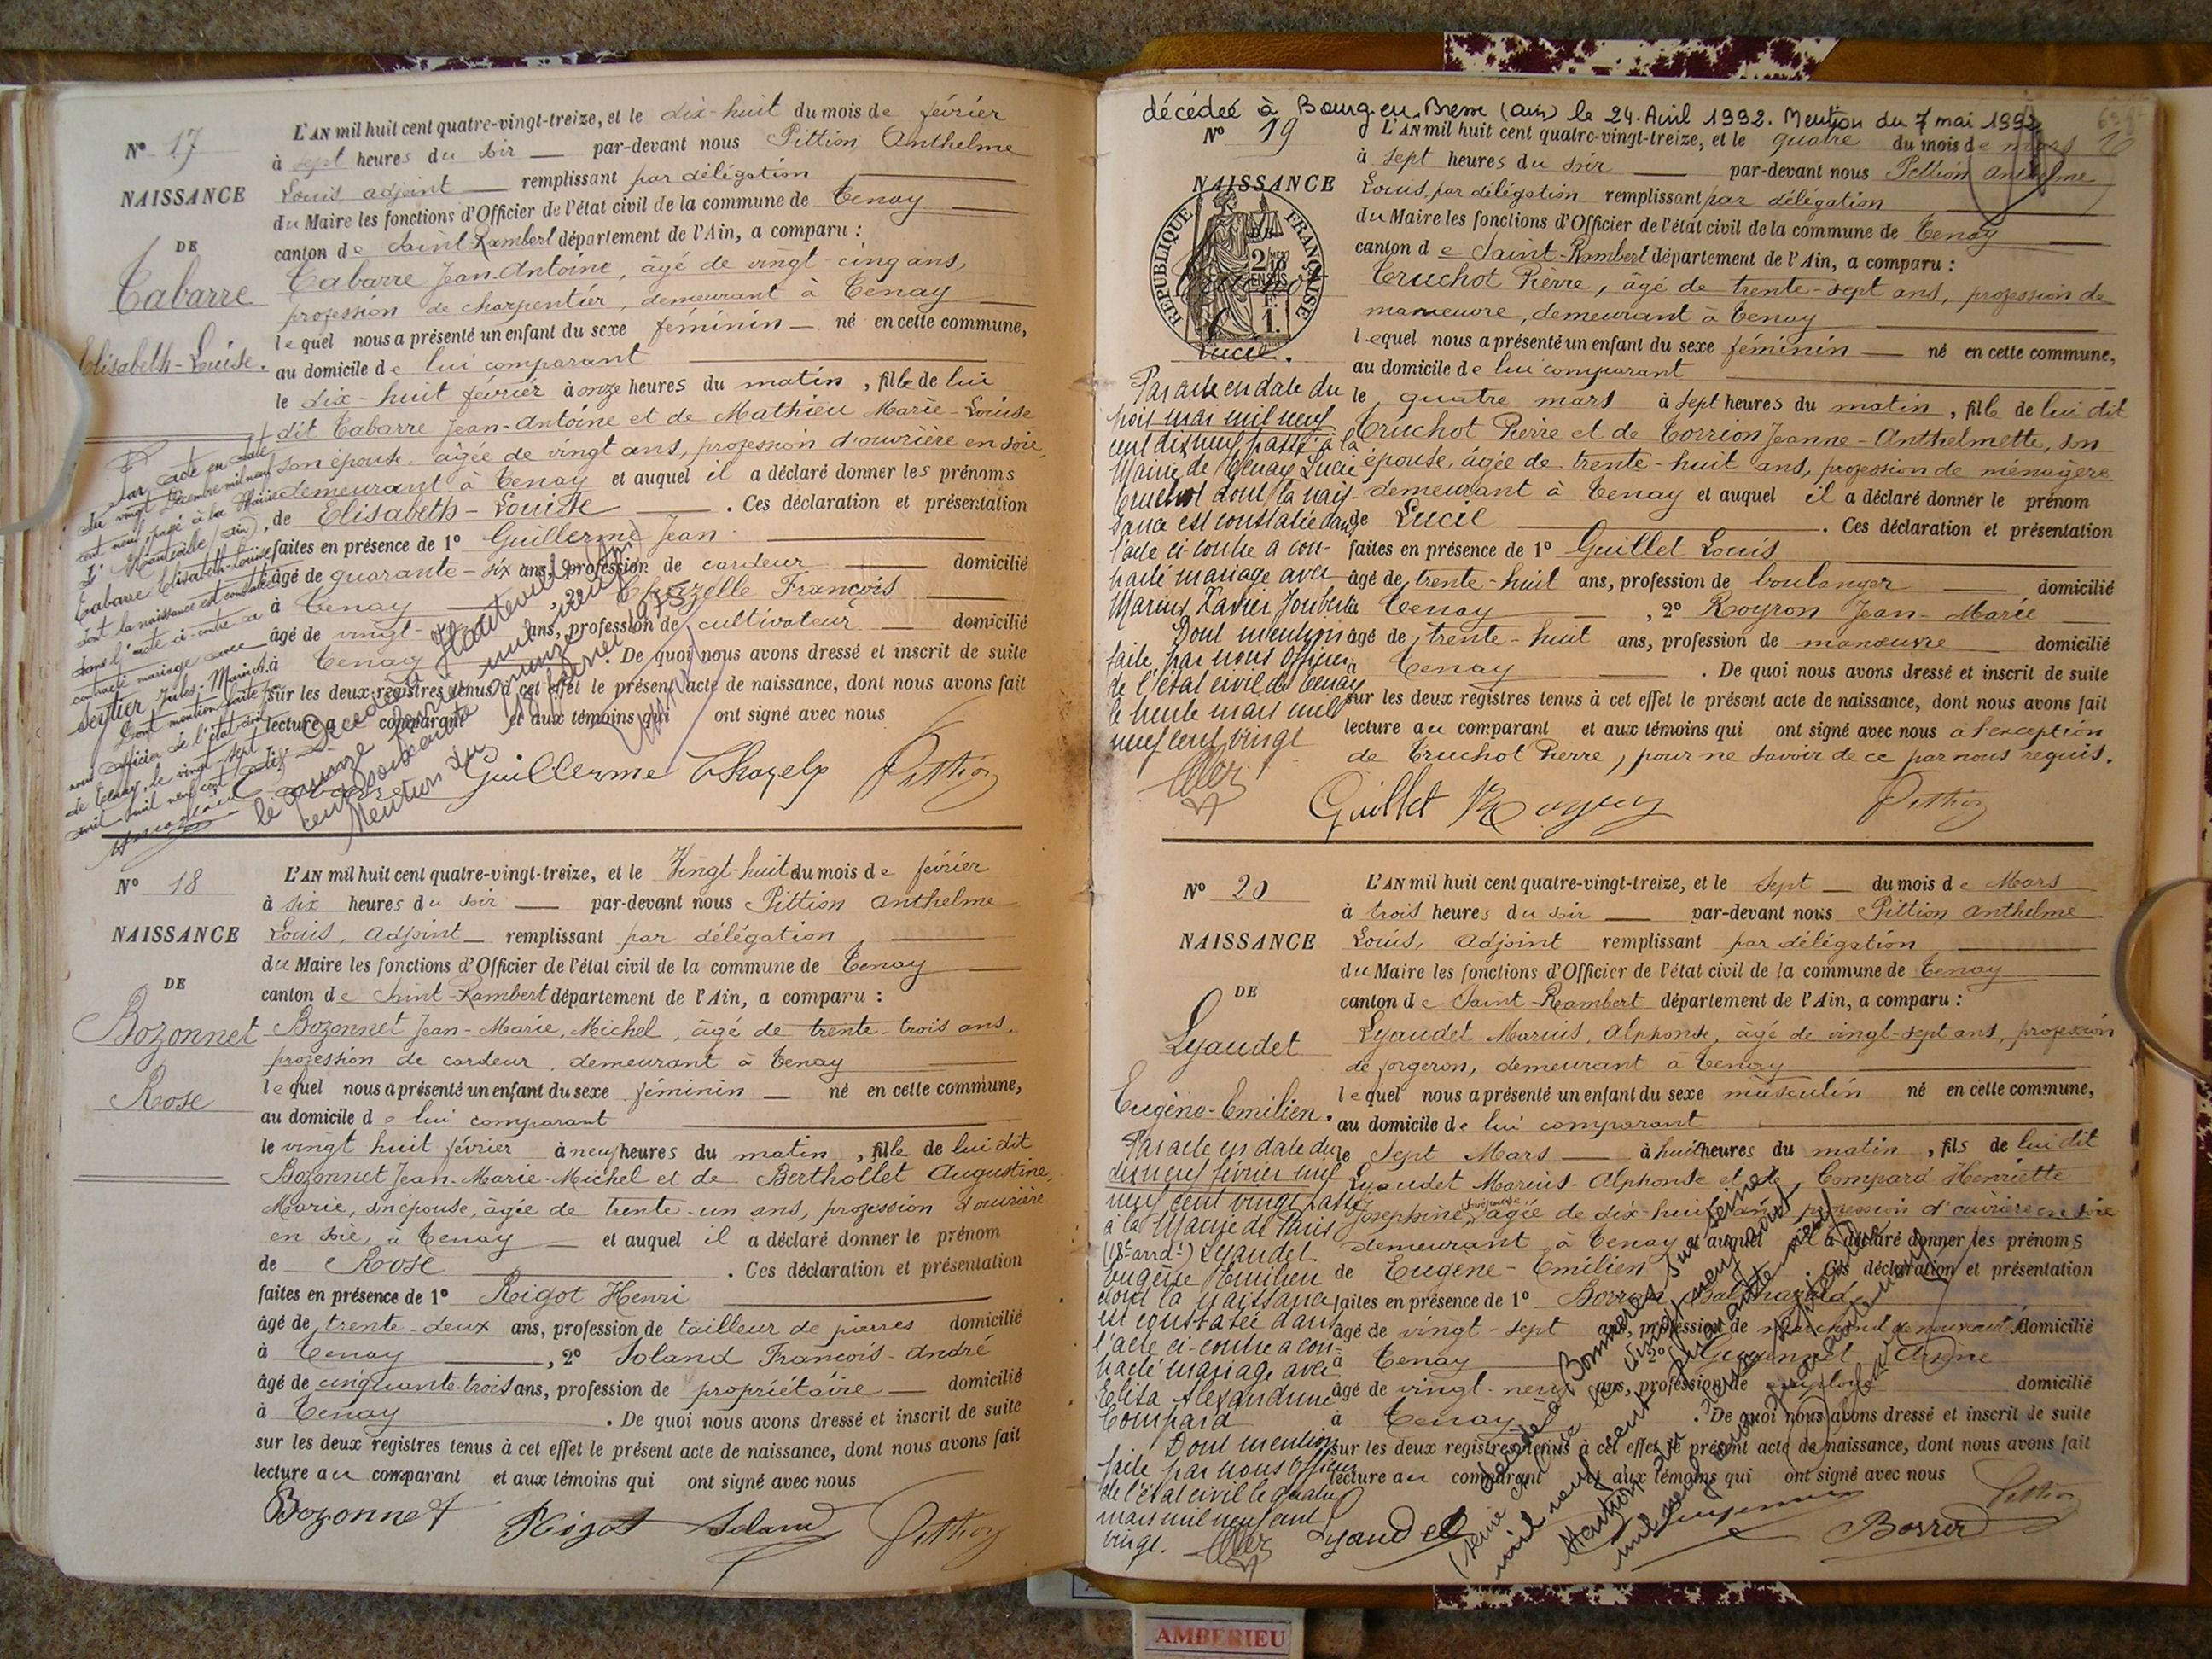 N° 17
NAISSANCE
DE
Tabarre
Elisabeth-Louise.
L'AN mil huit cent quatre-vingt-treize, et le dix-huit du mois de février
à sept heures du soir — par-devant nous Pittion Anthelme
Louis adjoint — remplissant par délégation
du Maire les fonctions d'Officier de l'état civil de la commune de Tenay
canton de Saint-Rambert département de l'Ain, a comparu :
Tabarre Jean-Antoine, âgé de vingt-cinq ans,
profession de charpentier, demeurant à Tenay
lequel nous a présenté un enfant du sexe féminin — né en cette commune,
au domicile de lui comparant
le dix-huit février à onze heures du matin, fille de lui
dit Tabarre Jean-Antoine et de Mathieu Marie-Louise
son épouse, âgée de vingt ans, profession d'ouvrière en soie,
demeurant à Tenay et auquel il a déclaré donner les prénoms
de Elisabeth-Louise — . Ces déclaration et présentation
faites en présence de 1° Guillerme Jean
âgé de quarante-six ans, profession de cardeur — domicilié
à Tenay , 2° Chazelle François
âgé de vingt- ans, profession de cultivateur — domicilié
à Tenay . De quoi nous avons dressé et inscrit de suite
sur les deux registres tenus à cet effet le présent acte de naissance, dont nous avons fait
lecture au comparant et aux témoins qui ont signé avec nous
Par acte en date
du vingt décembre mil neuf
cent neuf passé à la Mairie
d'Hauteville (Ain),
Tabarre Elisabeth-Louise
dont la naissance est constatée
dans l'acte ci-contre a
contracté mariage avec
Seytier Jules-Marius.
Dont mention faite par
nous officier de l'état civil
de Tenay, le vingt-sept
avril mil neuf cent dix
Décédée à Hauteville (Ain)
le quinze janvier mil neuf
cent soixante quinze
Mention du 1975
Guillerme Chazelle Pittion
N° 18
NAISSANCE
DE
Bozonnet
Rose
L'AN mil huit cent quatre-vingt-treize, et le Vingt-huit du mois de février
à six heures du soir — par-devant nous Pittion Anthelme
Louis, adjoint — remplissant par délégation
du Maire les fonctions d'Officier de l'état civil de la commune de Tenay
canton de Saint-Rambert département de l'Ain, a comparu :
Bozonnet Jean-Marie, Michel, âgé de trente-trois ans,
profession de cardeur, demeurant à Tenay
lequel nous a présenté un enfant du sexe féminin — né en cette commune,
au domicile de lui comparant
le vingt huit février à neuf heures du matin, fille de lui dit
Bozonnet Jean-Marie-Michel et de Berthollet Augustine,
Marie, son épouse, âgée de trente-un ans, profession d'ouvrière
en soie, à Tenay — et auquel il a déclaré donner le prénom
de Rose . Ces déclaration et présentation
faites en présence de 1° Rigot Henri
âgé de trente-deux ans, profession de tailleur de pierres domicilié
à Tenay , 2° Soland François-André
âgé de cinquante-trois ans, profession de propriétaire — domicilié
à Tenay . De quoi nous avons dressé et inscrit de suite
sur les deux registres tenus à cet effet le présent acte de naissance, dont nous avons fait
lecture au comparant et aux témoins qui ont signé avec nous
Bozonnet Rigot Soland Pittion
décédée à Bourg-en-Bresse (Ain) le 24 Avril 1992. Mention du 7 mai 1992
N° 19
NAISSANCE
DE
REPUBLIQUE FRANÇAISE
Lucie.
L'AN mil huit cent quatre-vingt-treize, et le quatre du mois de mars
à sept heures du soir — par-devant nous Pittion Anthelme
Louis, par délégation remplissant par délégation
du Maire les fonctions d'Officier de l'état civil de la commune de Tenay
canton de Saint-Rambert département de l'Ain, a comparu :
Truchot Pierre, âgé de trente-sept ans, profession de
maneuvre, demeurant à Tenay
lequel nous a présenté un enfant du sexe féminin — né en cette commune,
au domicile de lui comparant
le quatre mars à sept heures du matin, fille de lui dit
Truchot Pierre et de Torrion Jeanne-Anthelmette, son
épouse, âgée de trente-huit ans, profession de ménagère
demeurant à Tenay et auquel il a déclaré donner le prénom
de Lucie . Ces déclaration et présentation
faites en présence de 1° Guillet Louis
âgé de trente-huit ans, profession de boulanger — domicilié
à Tenay , 2° Royron Jean-Marie
âgé de trente-huit ans, profession de manœuvre domicilié
à Tenay . De quoi nous avons dressé et inscrit de suite
sur les deux registres tenus à cet effet le présent acte de naissance, dont nous avons fait
lecture au comparant et aux témoins qui ont signé avec nous à l'exception
de Truchot Pierre, pour ne savoir de ce par nous requis.
Par acte en date du
trois mai mil neuf
cent dix neuf passé à la
Mairie de Tenay Lucie
Truchot dont la nais-
sance est constatée dans
l'acte ci-contre a con-
tracté mariage avec
Marius Xavier Joubert
Dont mention
faite par nous Officier
de l'état civil de Tenay
le trente mars mil
neuf cent vingt
Guillet Royron Pittion
N° 20
NAISSANCE
DE
Lyaudet
Eugène-Emilien.
L'AN mil huit cent quatre-vingt-treize, et le Sept — du mois de Mars
à trois heures du soir — par-devant nous Pittion Anthelme
Louis, adjoint remplissant par délégation
du Maire les fonctions d'Officier de l'état civil de la commune de Tenay
canton de Saint-Rambert département de l'Ain, a comparu :
Lyaudet Marius, Alphonse, âgé de vingt-sept ans, profession
de forgeron, demeurant à Tenay
lequel nous a présenté un enfant du sexe masculin né en cette commune,
au domicile de lui comparant
le Sept Mars — à huit heures du matin, fils de lui dit
Lyaudet Marius-Alphonse et de Compard Henriette
Josephine, son épouse, âgée de dix-huit ans, profession d'ouvrière en soie
demeurant à Tenay et auquel il a déclaré donner les prénoms
de Eugène-Emilien . Ces déclaration et présentation
faites en présence de 1° Borron
âgé de vingt-sept ans, profession de marchand de nouveautés domicilié
à Tenay , 2°
âgé de vingt-neuf ans, profession de employé domicilié
à Tenay . De quoi nous avons dressé et inscrit de suite
sur les deux registres tenus à cet effet le présent acte de naissance, dont nous avons fait
lecture au comparant et aux témoins qui ont signé avec nous
Par acte en date du
dix neuf février mil
neuf cent vingt passé
à la Mairie de Paris
(18e arrdt) Lyaudet
Eugène Emilien
dont la naissance
est constatée dans
l'acte ci-contre a con-
tracté mariage avec
Elisa Alexandrine
Compard
Dont mention
faite par nous Officier
de l'état civil le quatre
mars mil neuf cent
vingt.
Décédé à Bonnières sur Seine
(Seine et Oise) le dix neuf août
mil neuf cent
Mention du
mil neuf cent
Lyaudet Pittion
AMBERIEU